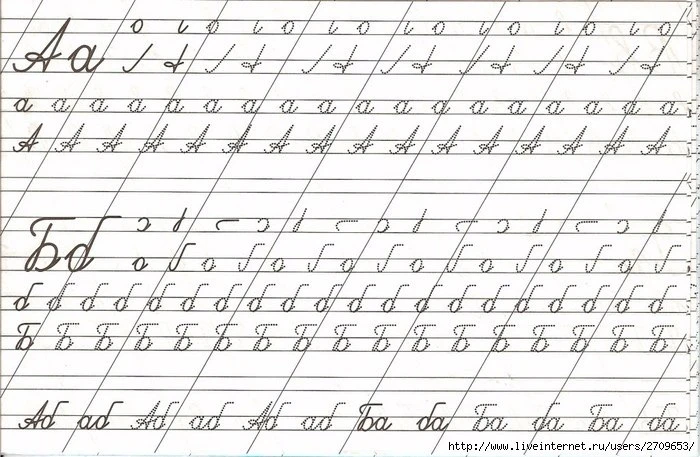 Аа
а а а а а а а а а а а а а а а а а а
А А А А А А А А А А А А А А А А
Бб
б б б б б б б б б б б б б б б б б б б б
Б Б Б Б Б Б Б Б Б Б Б Б Б Б Б Б Б
Аб аб Аб аб Аб аб Ба ба Ба ба Ба ба
http://www.liveinternet.ru/users/2709653/